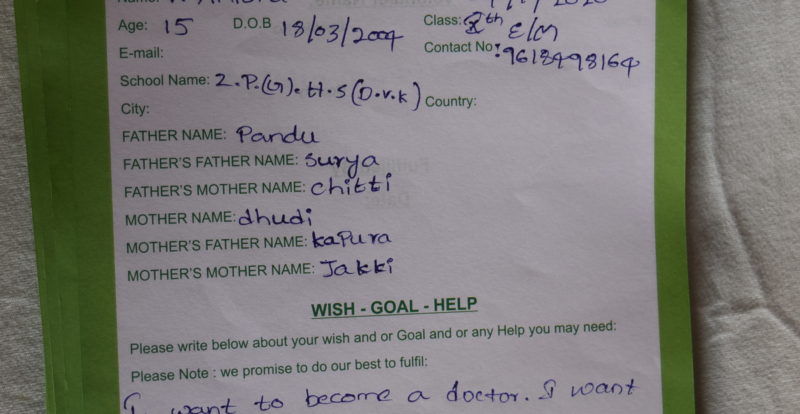 Age: 15 D.O.B 18/03/2004 Class: 8th E/M
E-mail: Contact No: 9618498164
School Name: Z.P.(G).H.S(D.v.k) Country:
City:
FATHER NAME: Pandu
FATHER'S FATHER NAME: Surya
FATHER'S MOTHER NAME: Chitti
MOTHER NAME: dhudi
MOTHER'S FATHER NAME: kaPura
MOTHER'S MOTHER NAME: Jakki
WISH - GOAL - HELP
Please write below about your wish and or Goal and or any Help you may need:
Please Note : we promise to do our best to fulfil:
I want to become a doctor. I want